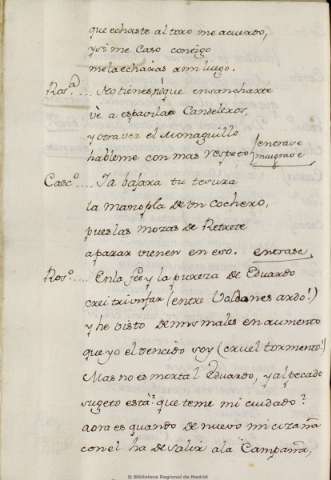 que echaste al toro me acuerdo,
y si me Caso contigo
me la echarias a mi luego.
Ros.ª.... No tienes q.e ensancharte
ve a espavilar Candeleros,
y otra vez el Monaguillo
hableme con mas respeto. entrase
Casc.º.... Ya bajara tu tesura
la manopla de un Cochero,
pues las mozas de Retrete
a parar vienen en eso. entrase.
Ros.º.... En la fee y la pureza de Eduardo
crei triunfar (entre Valdanes ardo!)
y he visto de mis males en aumento
que yo el vencido soy (cruel tormento!)
Mas no es mortal Eduardo, y al pecado
sugeto está? que teme mi cuidado?
aora es quando de nuevo mi cizaña
con el ha de salir a la Campaña,
© Biblioteca Regional de Madrid